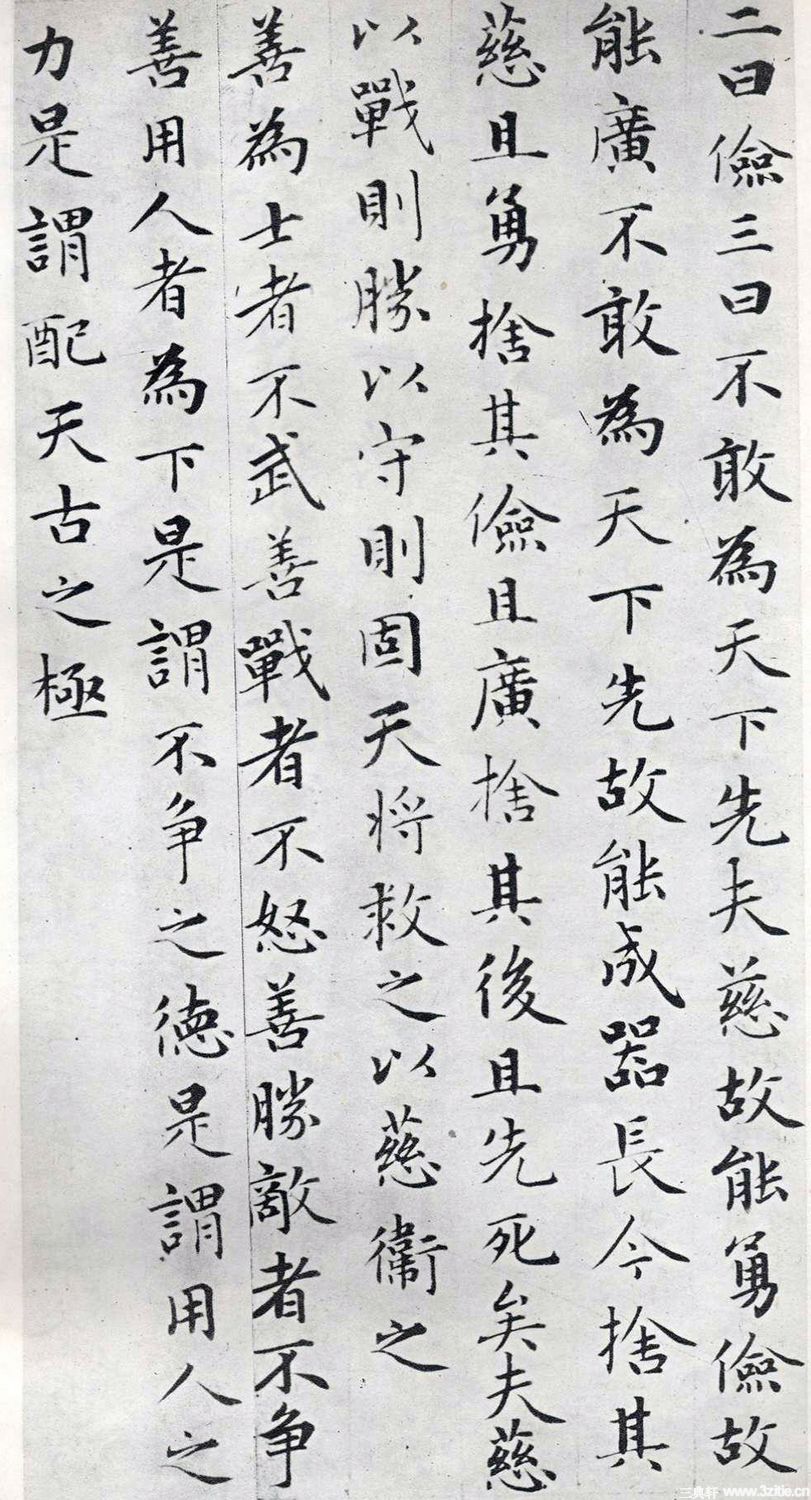 二曰儉三曰不敢為天下先夫慈故能勇儉故
能廣不敢為天下先故能成器長今捨其
慈且勇捨其儉且廣捨其後且先死矣夫慈
以戰則勝以守則固天将救之以慈衞之
善為士者不武善戰者不怒善勝敵者不争
善用人者為下是謂不争之德是謂用人之
力是謂配天古之極
三典轩 www.3zitie.cn